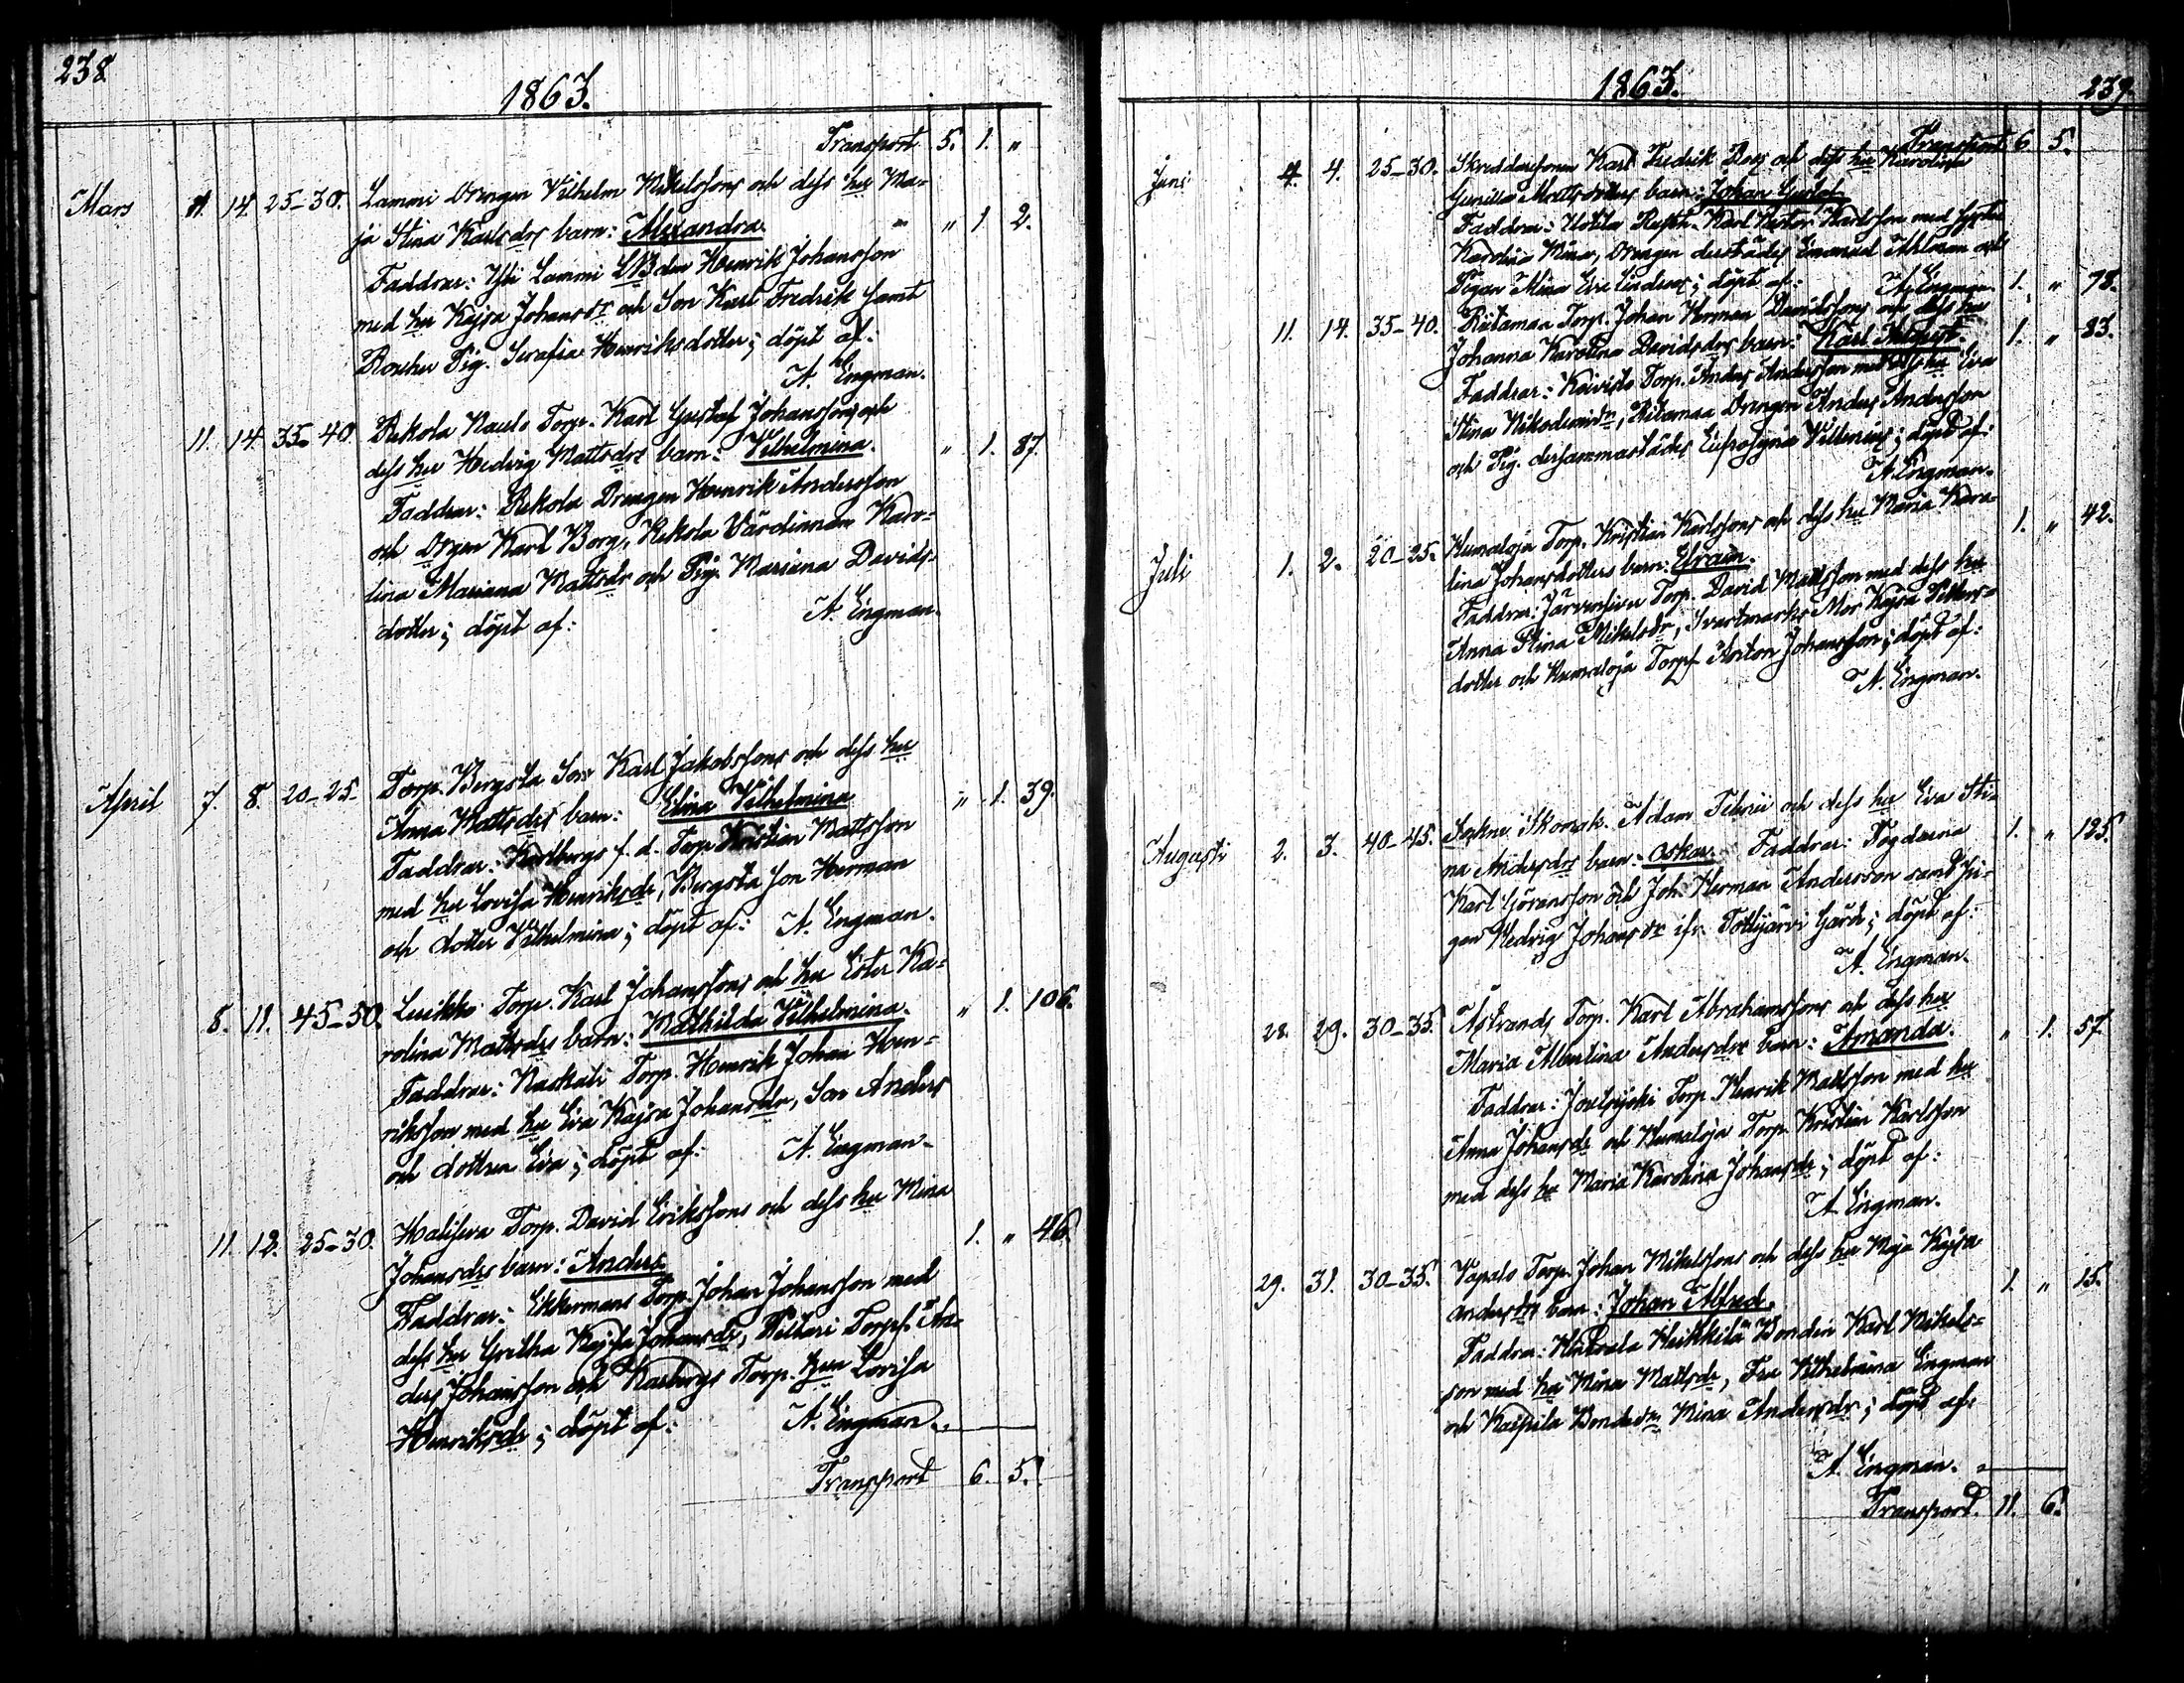 238.
1863.
Transport 5. 1. "
Mars 11. 14. 25-30. Lammi Drengen Vilhelm Mikelssons och dess hu Ma-
ja Stina Karlsdrs barn: Alexandra. " 1 2.
Faddrar: Yli Lammi Henrik Johansson
med hu Kajsa Johansdr och Son Karl Fredrik samt
Pig. Serafia Henriksdotter; döpt af:
A. Engman.
11. 14. 35-40. Rekola Torp. Karl Gustaf Johanssons och
dess hu Hedvig Mattsdrs barn: Vilhelmina. " 1. 87.
Faddrar: Rekola Drengen Henrik Andersson
och Drgen Karl Borg, Rekola Värdinnan Karo-
lina Mariana Mattsdr och Pig. Mariana Davids-
dotter; döpt af: A. Engman.
April 7. 8. 20-25. Torp. Bergsta Son Karl Jakobssons och dess hu
Anna Mattsdrs barn: Elina Vilhelmina " 1. 39.
Faddrar: Karlbergs f. d. Torp Kristian Mattsson
med hu Lovisa Henriksdr, Bergsta Son Herman
och dotter Vilhelmina; döpt af: A. Engman.
8. 11. 45-50. Luikko Torp. Karl Johanssons och hu Ester Ka-
rolina Mattsdrs barn: Mathilda Vilhelmina. " 1. 106.
Faddrar: Torp. Henrik Johan Hen-
riksson med hu Eva Kajsa Johansdr, Son Anders
och dottren Eva; döpt af: A. Engman.
11. 12. 25-30. Torp. David Erikssons och dess hu Mina
Johansdrs barn: Anders 1. " 46.
Faddrar: Ekkermans Torp. Johan Johansson med
dess hu Gretha Kajsa Johansdr, Torpf. An-
ders Johansson och Karlbergs Torp. hu Lovisa
Henriksdr; döpt af: A. Engman.
Transport 6. 5.
1863. 239.
Transport 6 5.
Juni 4. 4. 25-30. Skreddaresonen Karl Fredrik och dess hu Karolina
Gunilla Mattsdotters barn: Johan Gustaf.
Faddrar: Karl Viktor Karlsson med syster
Karolina Mina, Drengen derstädes Emanuel Ahlman och
Pigan Mina Eva; döpt af: A. Engman. 1. " 78.
11. 14. 35-40. Riitamaa Torp. Johan Herman Davidssons och dess hu
Johanna Karolina Davidsdrs barn: Karl August. 1. " 83.
Faddrar: Koivisto Torp. Anders Andersson med dess hu Eva
Stina Nikodemidr, Riitamaa Drengen Anders Andersson
och Pig. dersammastädes Eufrosyna; döpt af:
A. Engman.
Juli 1. 2. 20-25. Humaloja Torp. Kristian Karlssons och dess hu Maria Karo-
lina Johansdotters barn: Efraim. 1. " 42.
Faddrar: Torp. David Mattsson med dess hu
Anna Stina Mikelsdr, Mor Kajsa
dotter och Humaloja Torpf. Anton Johansson; döpt af:
A. Engman.
Augusti 2. 3. 40-45. Sockne Skomak. Adam och dess hu Eva Sti-
na Andersdrs barn: Oskar. Faddrar: 1. " 125.
Karl Göransson och Joh. Herman Andersson samt Pi-
gan Hedvig Johansdr ifr. Tottijärvi Gård; döpt af:
A. Engman.
28. 29. 30-35. Åstrands Torp. Karl Abrahamssons och dess hu
Maria Albertina Andersdrs barn: Amanda. " 1. 57.
Faddrar: Torp. Henrik Mattsson med hu
Anna Johansdr och Humaloja Torp. Kristian Karlsson
med dess hu Maria Karolina Johansdr; döpt af:
A. Engman.
29. 31. 30-35. Torp. Johan Mikelssons och dess hu Maja Kajsa
Andersdrs barn: Johan Alfred. 1. " 15.
Faddrar: Heikkilä Bonden Karl Mikels-
son med hu Mina Mattsdr, Fru Vilhelmina Engman
och Bondedr. Mina Andersdr; döpt af:
A. Engman.
Transport. 11. 6.